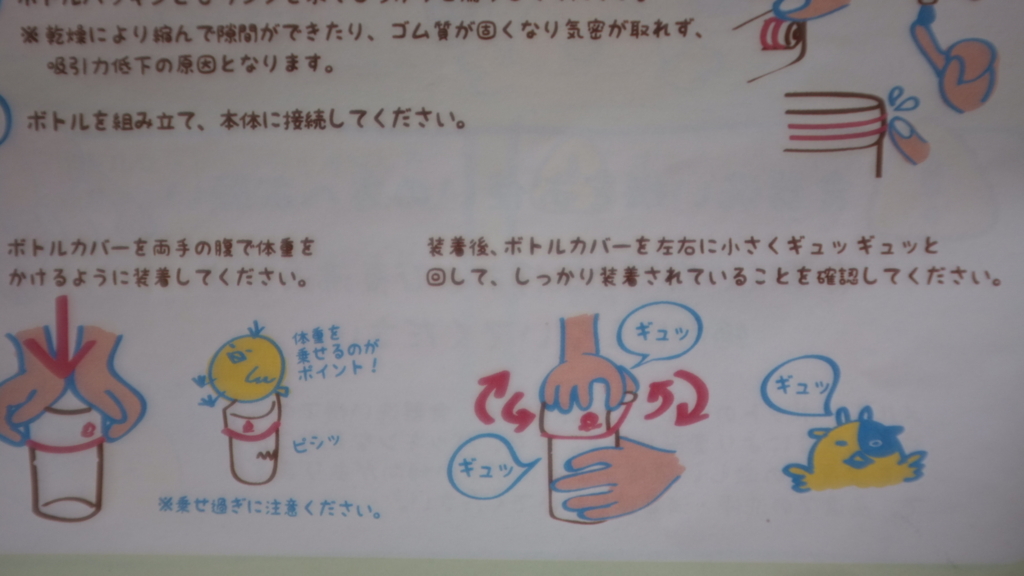 ※乾燥により縮んで隙間ができたり、ゴム質が固くなり気密が取れず、
吸引力低下の原因となります。
ボトルを組み立て、本体に接続してください。
ボトルカバーを両手の腹で体重を
かけるように装着してください。
装着後、ボトルカバーを左右に小さくギュッ ギュッと
回して、しっかり装着されていることを確認してください。
体重を
乗せるのが
ポイント!
ビシッ
※乗せ過ぎに注意ください。
ギュッ
ギュッ
ギュッ